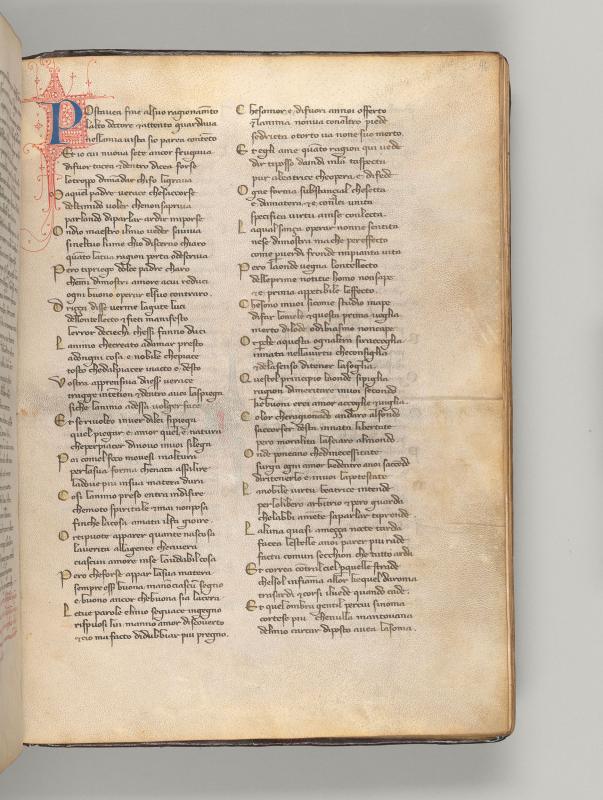 POsta vea fine alsuo ragionamto
lalto dottore et attento guardava
nella mia vista sio parea contento
Et io cui nuova sete ancor frugava
difuor tacea et dentro dicea forse
lo troppo dimandar chifo li grava
Ma quel padre verace ches accorse
del timido voler che non sapriva
parlando diparlar ardir miporse
Ondio maestro ilmio veder saviva
sinel tuo lume chio discerno chiaro
quato latua ragion porta o descriva
Pero tiprego dolce padre charo
chemi dimostri amore acui reduci
ogni buono operar elsuo contraro
Drizza disse verme lagute luci
dellontelletto et fieti manifesto
lerror deciechi chessi fanno duci
Lanimo checreato adamar presto
adongni cosa e nobile chepiace
tosto chedalpiacer inacto e desto
Vostra apprensiva daesser verace
tragge intention et dentro avoi laspiega
siche lanimo adessa volger face
Et se rivolto inver dilei sipiega
quel piegar e amor quel e natura
cheperpiacer dinuovo invoi silega
Poi comelfoco movesi inaltura
perlasua forma chenata assalire
ladove piu insua matera dura
Cosi lanimo preso entra indisire
chemoto spiritale et mai nonposa
finche lacosa amata ilfa gioire
Or tipuote apparer quante nascosa
laverita allagente chavvera
ciascun amore inse laudabil cosa
Pero cheforse appar lasua matera
sempre esser buona. mano ciascu segno
e buono ancor chebuona sia lacera
Letue parole elmio seguace ingegno
rispuosi lui manno amor discoverto
et cio mafacto didubbiar piu pregno.
Chesamor e difuori annoi offerto
et lanima nonva conaltro piede
sedricta o torto va none suo merto.
Et egli ame quato ragion qui vede
dir tiposso daindi inla taspecta
pur abeatrice cheopera e difede
Ogne forma substantial chesetta
e dimatera et e conlei unita
specifica virtu ainse conllecta.
Laqual sanza operar none sentita
nese dimostra ma che per effecto
come pverdi fronde impianta vita
Pero laonde vegna lontellecto
delleprime notitie homo nonsape
et e prima appetibile laffecto.
Chesono invoi sicome studio inape
difar lomele et questa prima voglia
merto dilode odibiasmo noncape
Or pche aquesta ognaltra siraccoglia
innata nellavirtu checonsiglia
et delassenso detener lasoglia.
Questel principio laonde sipiglia
ragion dimeritare invoi secondo
che buoni erei amor accoglie et viglia.
Color cheragionado andaro alfondo
saccorser desta innata libertate
pero moralita lasciaro almondo
Onde poneamo chedinecessitate
surga ogni amor kedentro avoi saccende
diritenerlo e invoi lapotestate
Lanobile virtu beatrice intende
per lolibero arbitrio et pero guarda
chelabbi amete saparlar tiprende.
Laluna quasi amezza nocte tarda
facea lestelle anoi parer piu rade
facta comun secchion che tutto arda
Et correa contral ciel pquelle strade
chelsol infiama allor kequel daroma
trasardi et corsi ilvede quando cade.
Et quel ombra gentil percui sinoma
cortese piu chevilla mantovana
delmio carcar diposto avea lasoma.